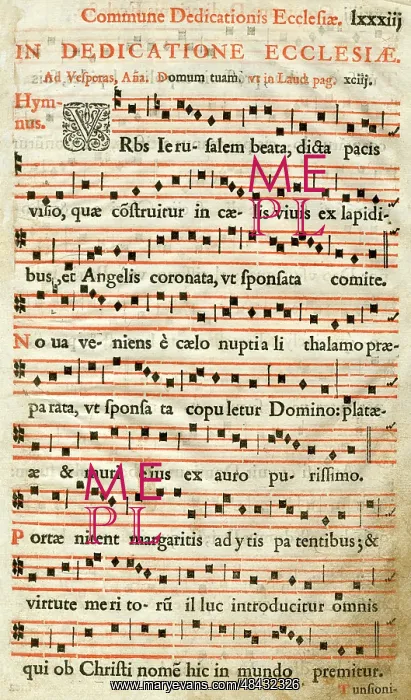 Commune Dedicationis Ecclesiæ. lxxxiij
IN DEDICATIONE ECCLESIÆ.
Ad Vesperas, Aña. Domum tuam. vt in Laud. pag. xciij.
Hym-
nus.
VRbs Ieru-salem beata, dicta pacis
visio, quæ cõstruitur in cæ-lis viuis ex lapidi-
bus, et Angelis coronata, vt sponsata comite.
Noua ve-niens è cælo nuptiali thalamo præ-
parata, vt sponsata copuletur Domino: platæ-
æ & muri eius ex auro pu-rissimo.
Portæ nitent margaritis adytis patentibus; &
virtute merito-rũ illuc introducitur omnis
qui ob Christi nomẽ hic in mundo premitur.
Tunsioni-
ME
PL
ME
PL
www.maryevans.com/48432326